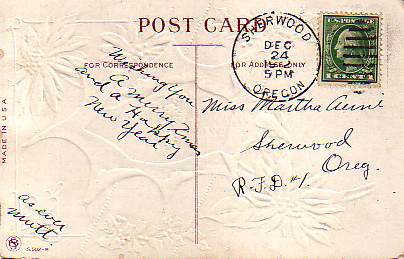 POST CARD
FOR CORRESPONDENCE
FOR ADDRESS ONLY
SHERWOOD
DEC
24
5 PM
OREGON
U.S. POSTAGE
Wishing You
A Merry Xmas
and a Happy
New Year
as ever
Mutt.
Miss Martha
Sherwood
Oreg.
R.F.D. #1.
MADE IN U.S.A.